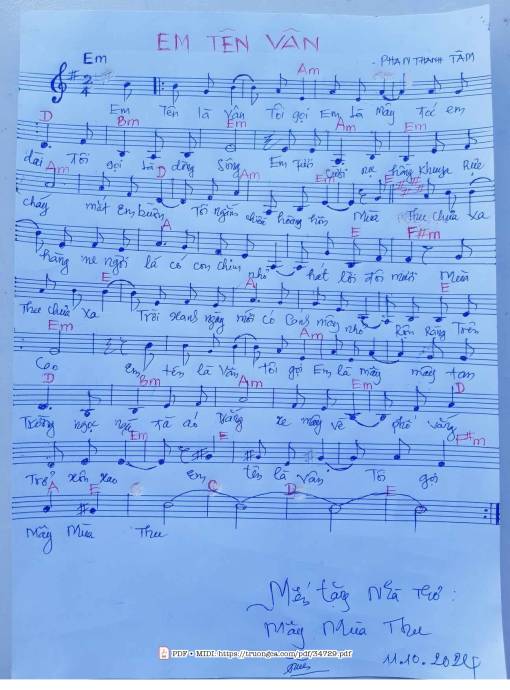 EM TÊN VÂN
- PHAN THANH TÂM
Em Am
2 4
Em Tên là Vân Tôi gọi Em là Mây Tóc em
D Bm Em Am Em
dài Tôi gọi là dòng Sông Em
Am Am Em E
cháy mắt em buồn Tôi ngắm chiều hoàng hôn Mùa Thu chưa xa
A E F#m
hàng me ngồi lá có con chim nhỏ hót lời đôi mươi Mùa
E A E
Thu chưa xa Trời xanh ngày mới có Cong mây nhỏ Trên
Em Am
Cao em tên là Vân tôi gọi Em là mây mây tan
D Bm Am Em D
Trường ngọc tà áo trắng xe mây về phố vắng
Em E F#m
Trở xôn xao Em tên là Vân Tôi gọi
A E C C D E
Mây Mùa Thu
Mến tặng Nhà Thơ :
Mây Mùa Thu
11.10.2024
PDF • MIDI: https://truongca.com/pdf/34729.pdf